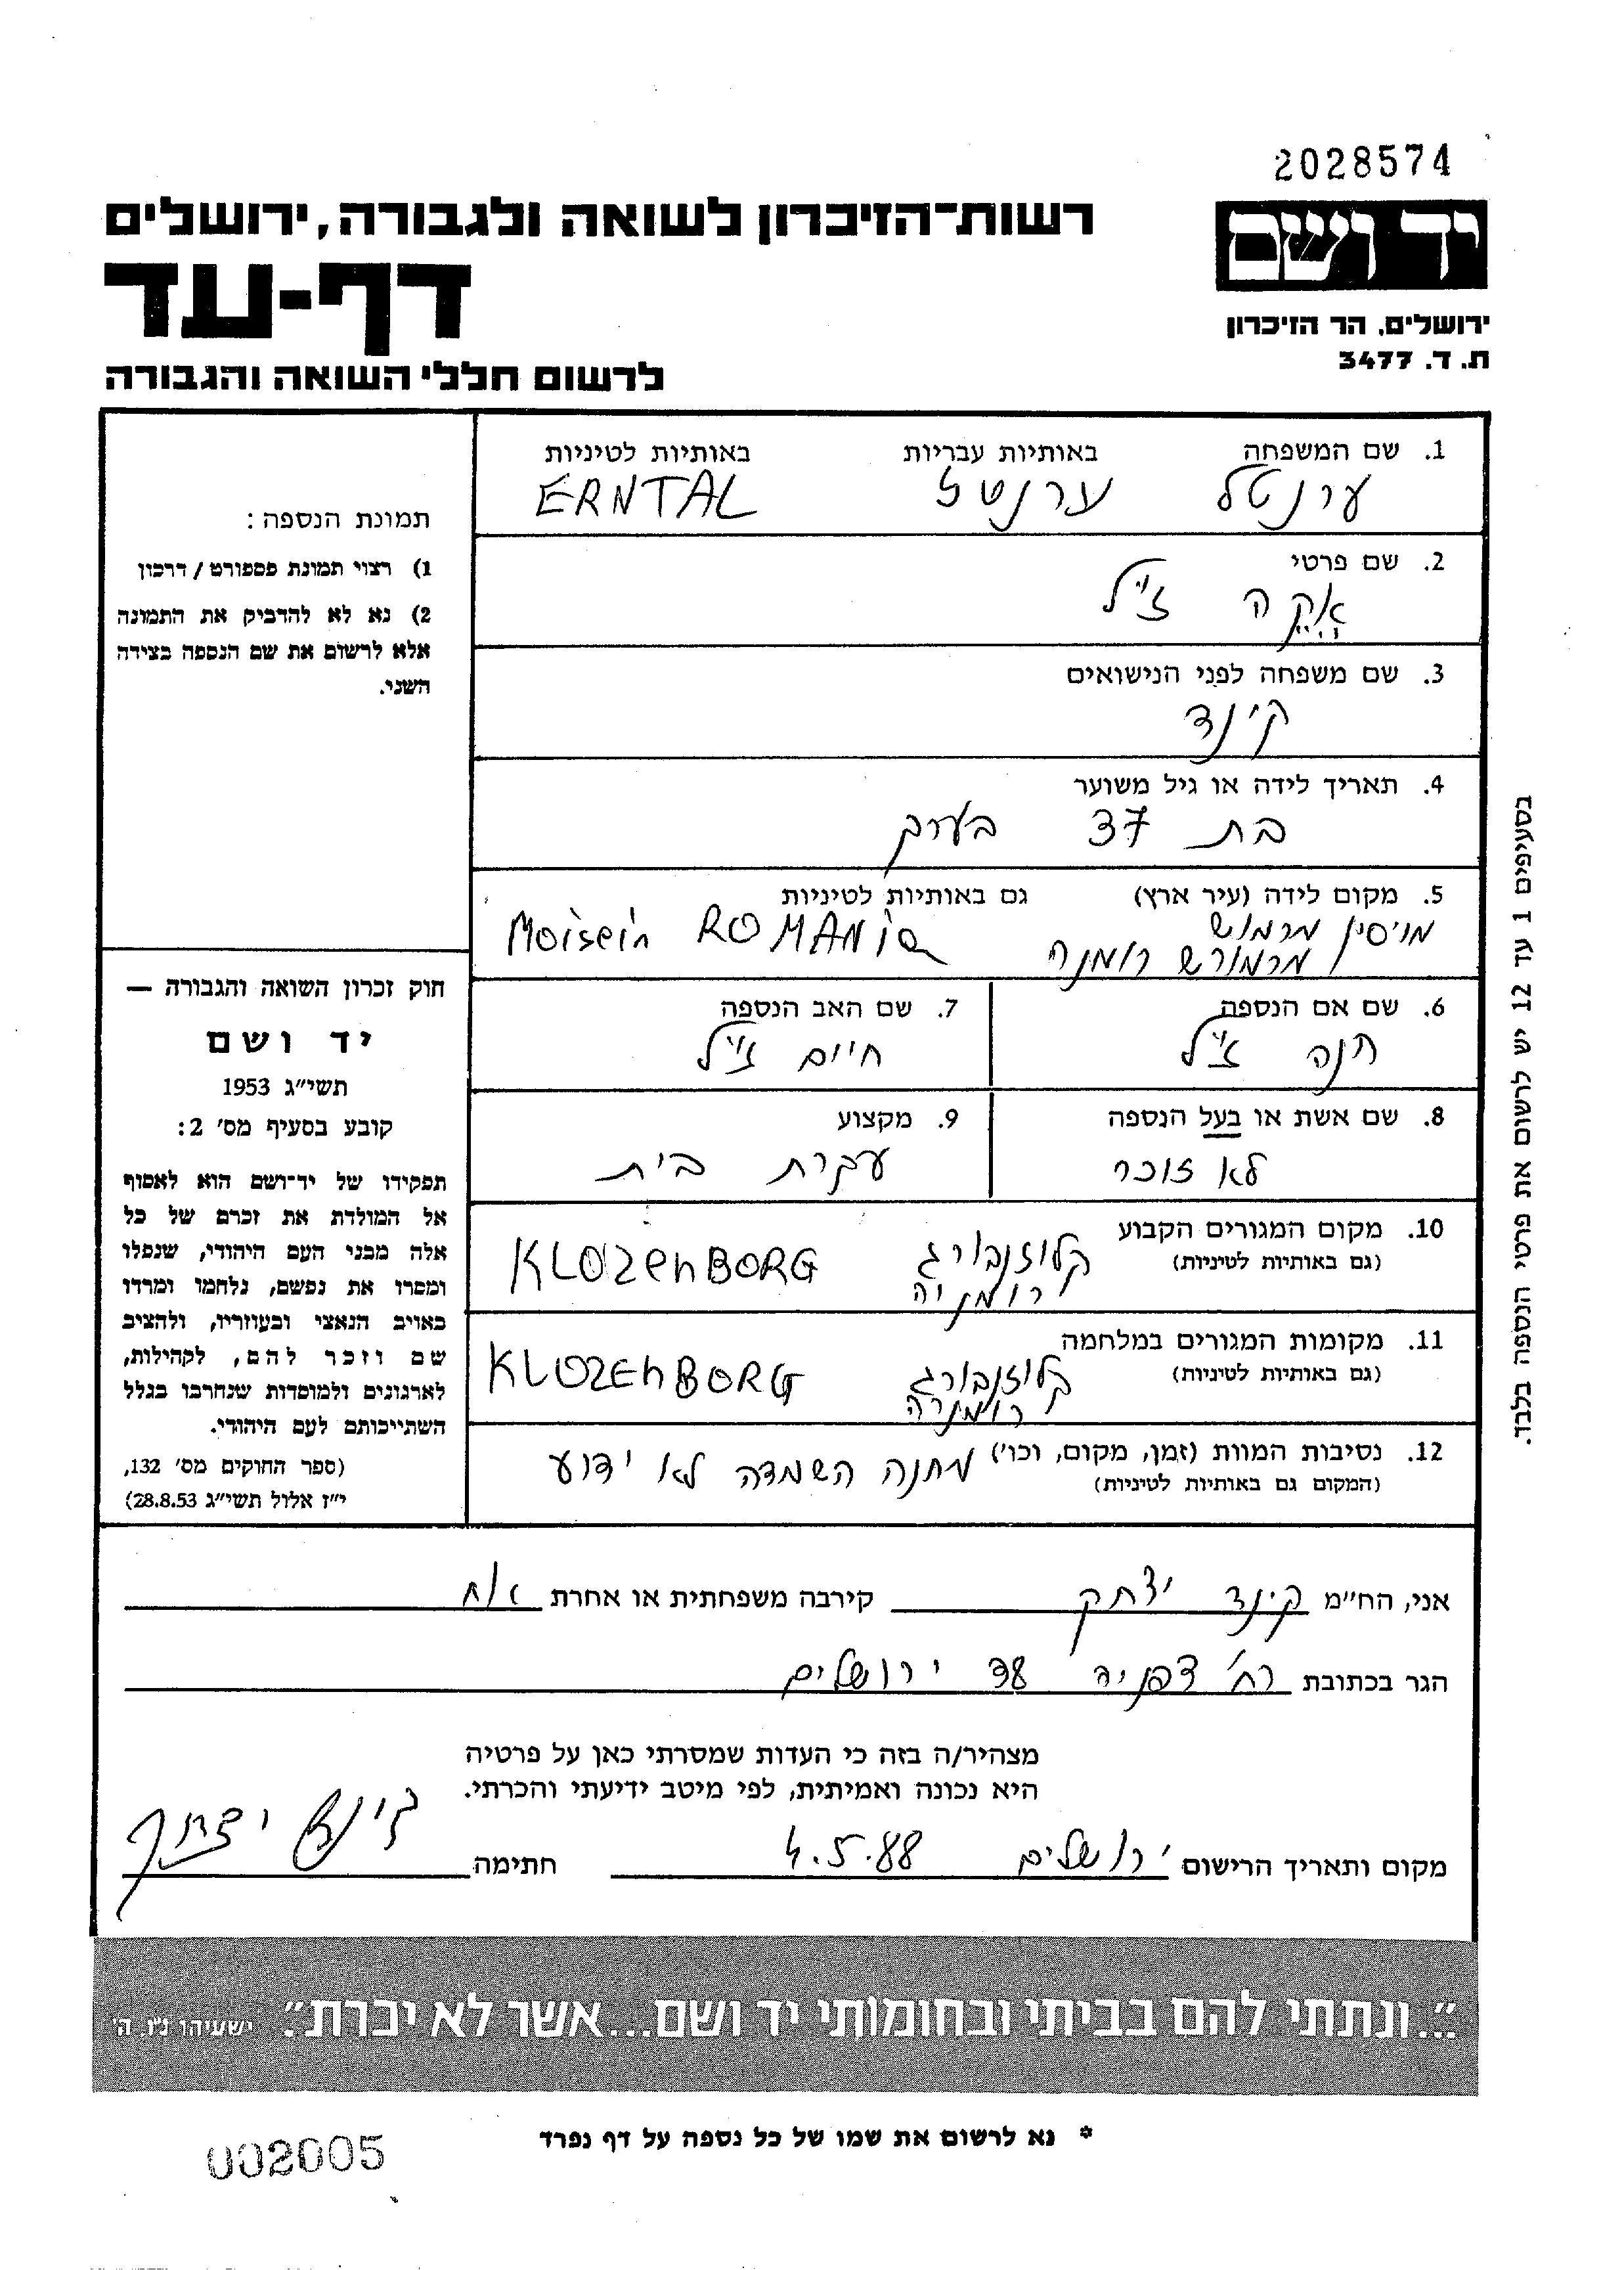 2028574
יד ושם
רשות-הזיכרון לשואה ולגבורה, ירושלים
דף-עד
ירושלים, הר הזיכרון
ת. ד. 3477
לרשום חללי השואה והגבורה
1. שם המשפחה באותיות עבריות באותיות לטיניות
ערנטל ערנטל ERNTAL
2. שם פרטי
ז"ל
3. שם משפחה לפני הנישואים
קינד
4. תאריך לידה או גיל משוער
בת 37 בערך
5. מקום לידה (עיר ארץ) גם באותיות לטיניות
מויסין מרמוש Moisein ROMANia
מרמורש רומנה
6. שם אם הנספה
חנה ז"ל
7. שם האב הנספה
חיים ז"ל
8. שם אשת או בעל הנספה
לא זוכר
9. מקצוע
עקרת בית
10. מקום המגורים הקבוע
(גם באותיות לטיניות)
קלוזנבורג KLOZenBORG
רומניה
11. מקומות המגורים במלחמה
(גם באותיות לטיניות)
קלוזנבורג KLOZEnBORG
רומניה
12. נסיבות המוות (זמן, מקום, וכו') מחנה השמדה לא ידוע
(המקום גם באותיות לטיניות)
תמונת הנספה:
1) רצוי תמונת פספורט / דרכון
2) נא לא להדביק את התמונה
אלא לרשום את שם הנספה בצידה
השני.
חוק זכרון השואה והגבורה —
יד ושם
תשי"ג 1953
קובע בסעיף מס' 2:
תפקידו של יד-ושם הוא לאסוף
אל המולדת את זכרם של כל
אלה מבני העם היהודי, שנפלו
ומסרו את נפשם, נלחמו ומרדו
באויב הנאצי ובעוזריו, ולהציב
שם וזכר להם, לקהילות,
לארגונים ולמוסדות שנחרבו בגלל
השתייכותם לעם היהודי.
(ספר החוקים מס' 132,
י"ז אלול תשי"ג 28.8.53)
בסעיפים 1 עד 12 יש לרשום את פרטי הנספה בלבד.
אני, הח"מ קינד יצחק קירבה משפחתית או אחרת אח
הגר בכתובת רח' צפניה 38 ירושלים
מצהיר/ה בזה כי העדות שמסרתי כאן על פרטיה
היא נכונה ואמיתית, לפי מיטב ידיעתי והכרתי.
מקום ותאריך הרישום ירושלים 4.5.88 חתימה קינד יצחק
"...ונתתי להם בביתי ובחומותי יד ושם...אשר לא יכרת". ישעיהו נ"ו, ה'
* נא לרשום את שמו של כל נספה על דף נפרד
002005